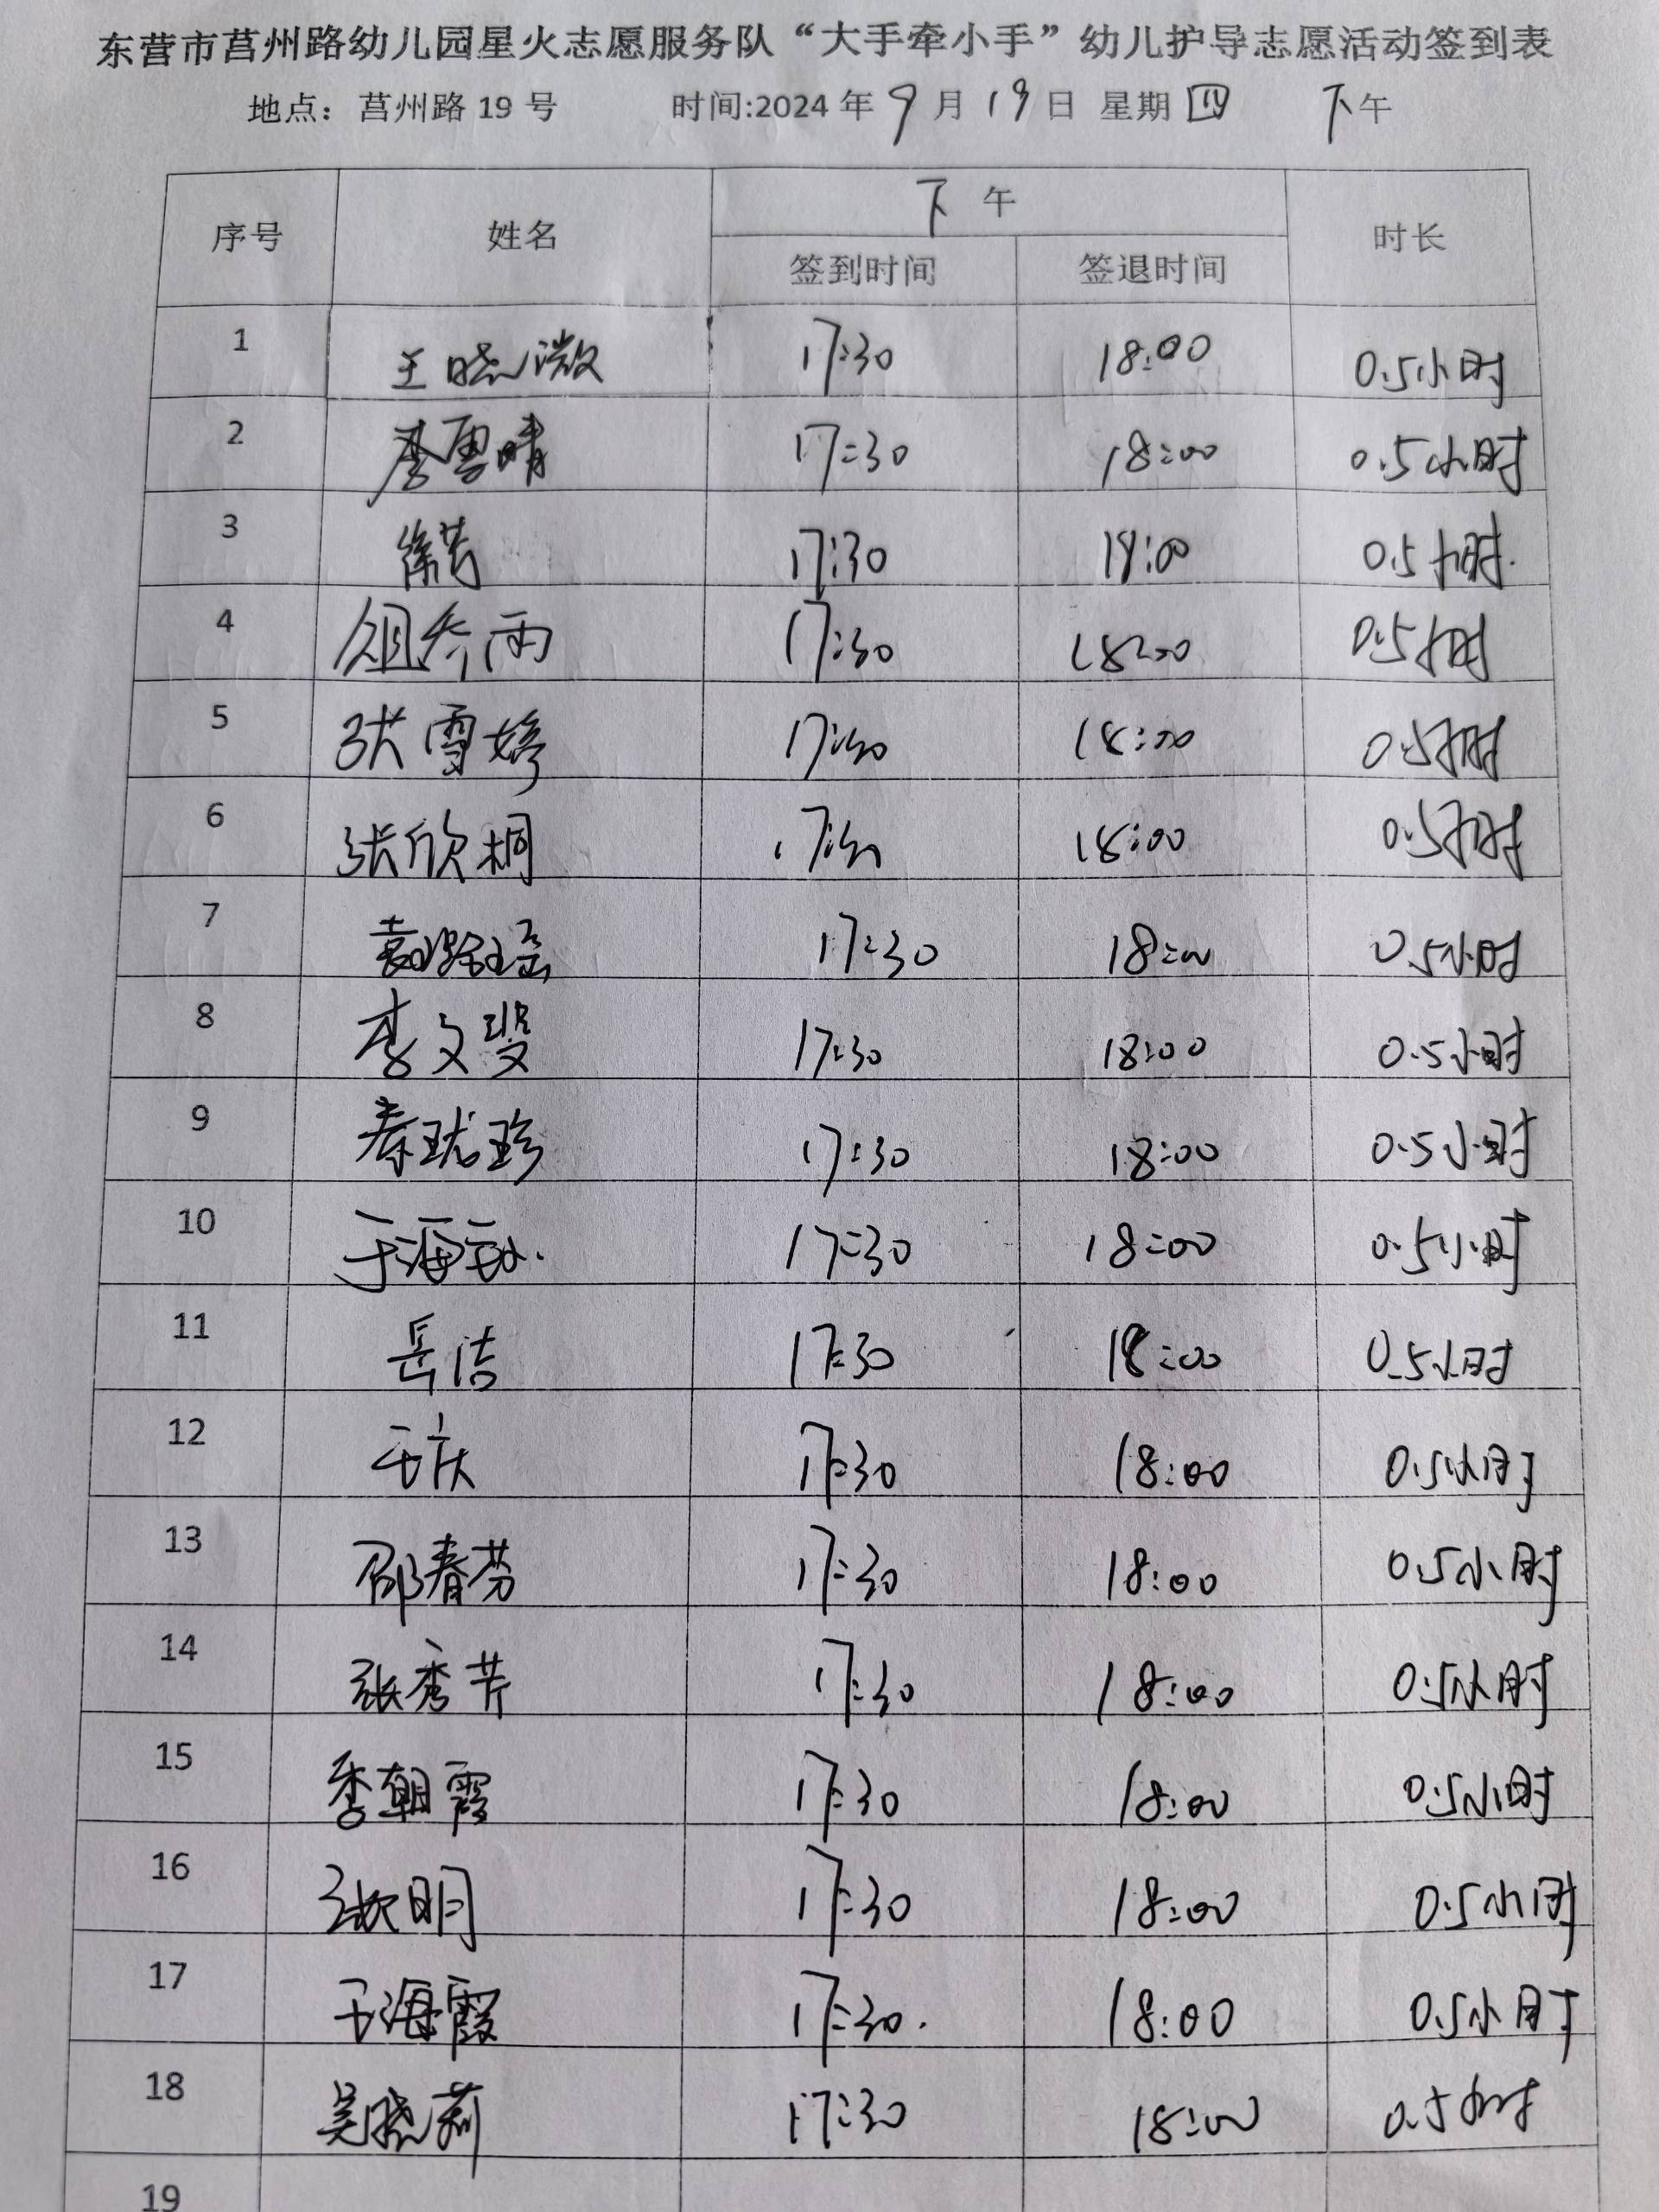 东营市莒州路幼儿园星火志愿服务队“大手牵小手”幼儿护导志愿活动签到表
地点：莒州路 19 号 时间:2024 年 9 月 19 日 星期 四 下午
序号 姓名 下 午 时长
签到时间 签退时间
1 王晓微 17:30 18:00 0.5小时
2 李雪晴 17:30 18:00 0.5小时
3 徐芳 17:30 18:00 0.5小时
4 17:30 18:00 0.5小时
5 张雪婷 17:30 18:00 0.5小时
6 张欣桐 17:30 18:00 0.5小时
7 袁璐瑶 17:30 18:00 0.5小时
8 李文 17:30 18:00 0.5小时
9 秦珑珍 17:30 18:00 0.5小时
10 于海 17:30 18:00 0.5小时
11 岳洁 17:30 18:00 0.5小时
12 于庆 17:30 18:00 0.5小时
13 邵春芬 17:30 18:00 0.5小时
14 张秀芹 17:30 18:00 0.5小时
15 季朝霞 17:30 18:00 0.5小时
16 张明 17:30 18:00 0.5小时
17 于海霞 17:30 18:00 0.5小时
18 吴晓莉 17:30 18:00 0.5小时
19